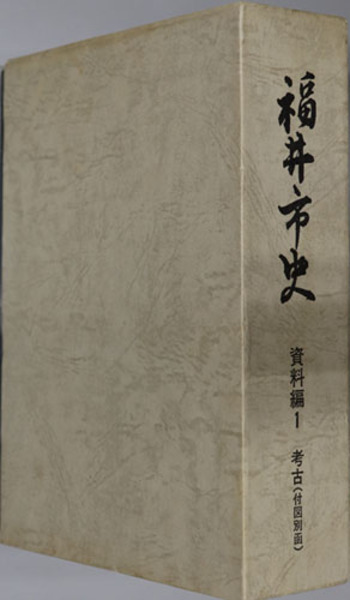 福井市史
資料編1 考古(付図別函)